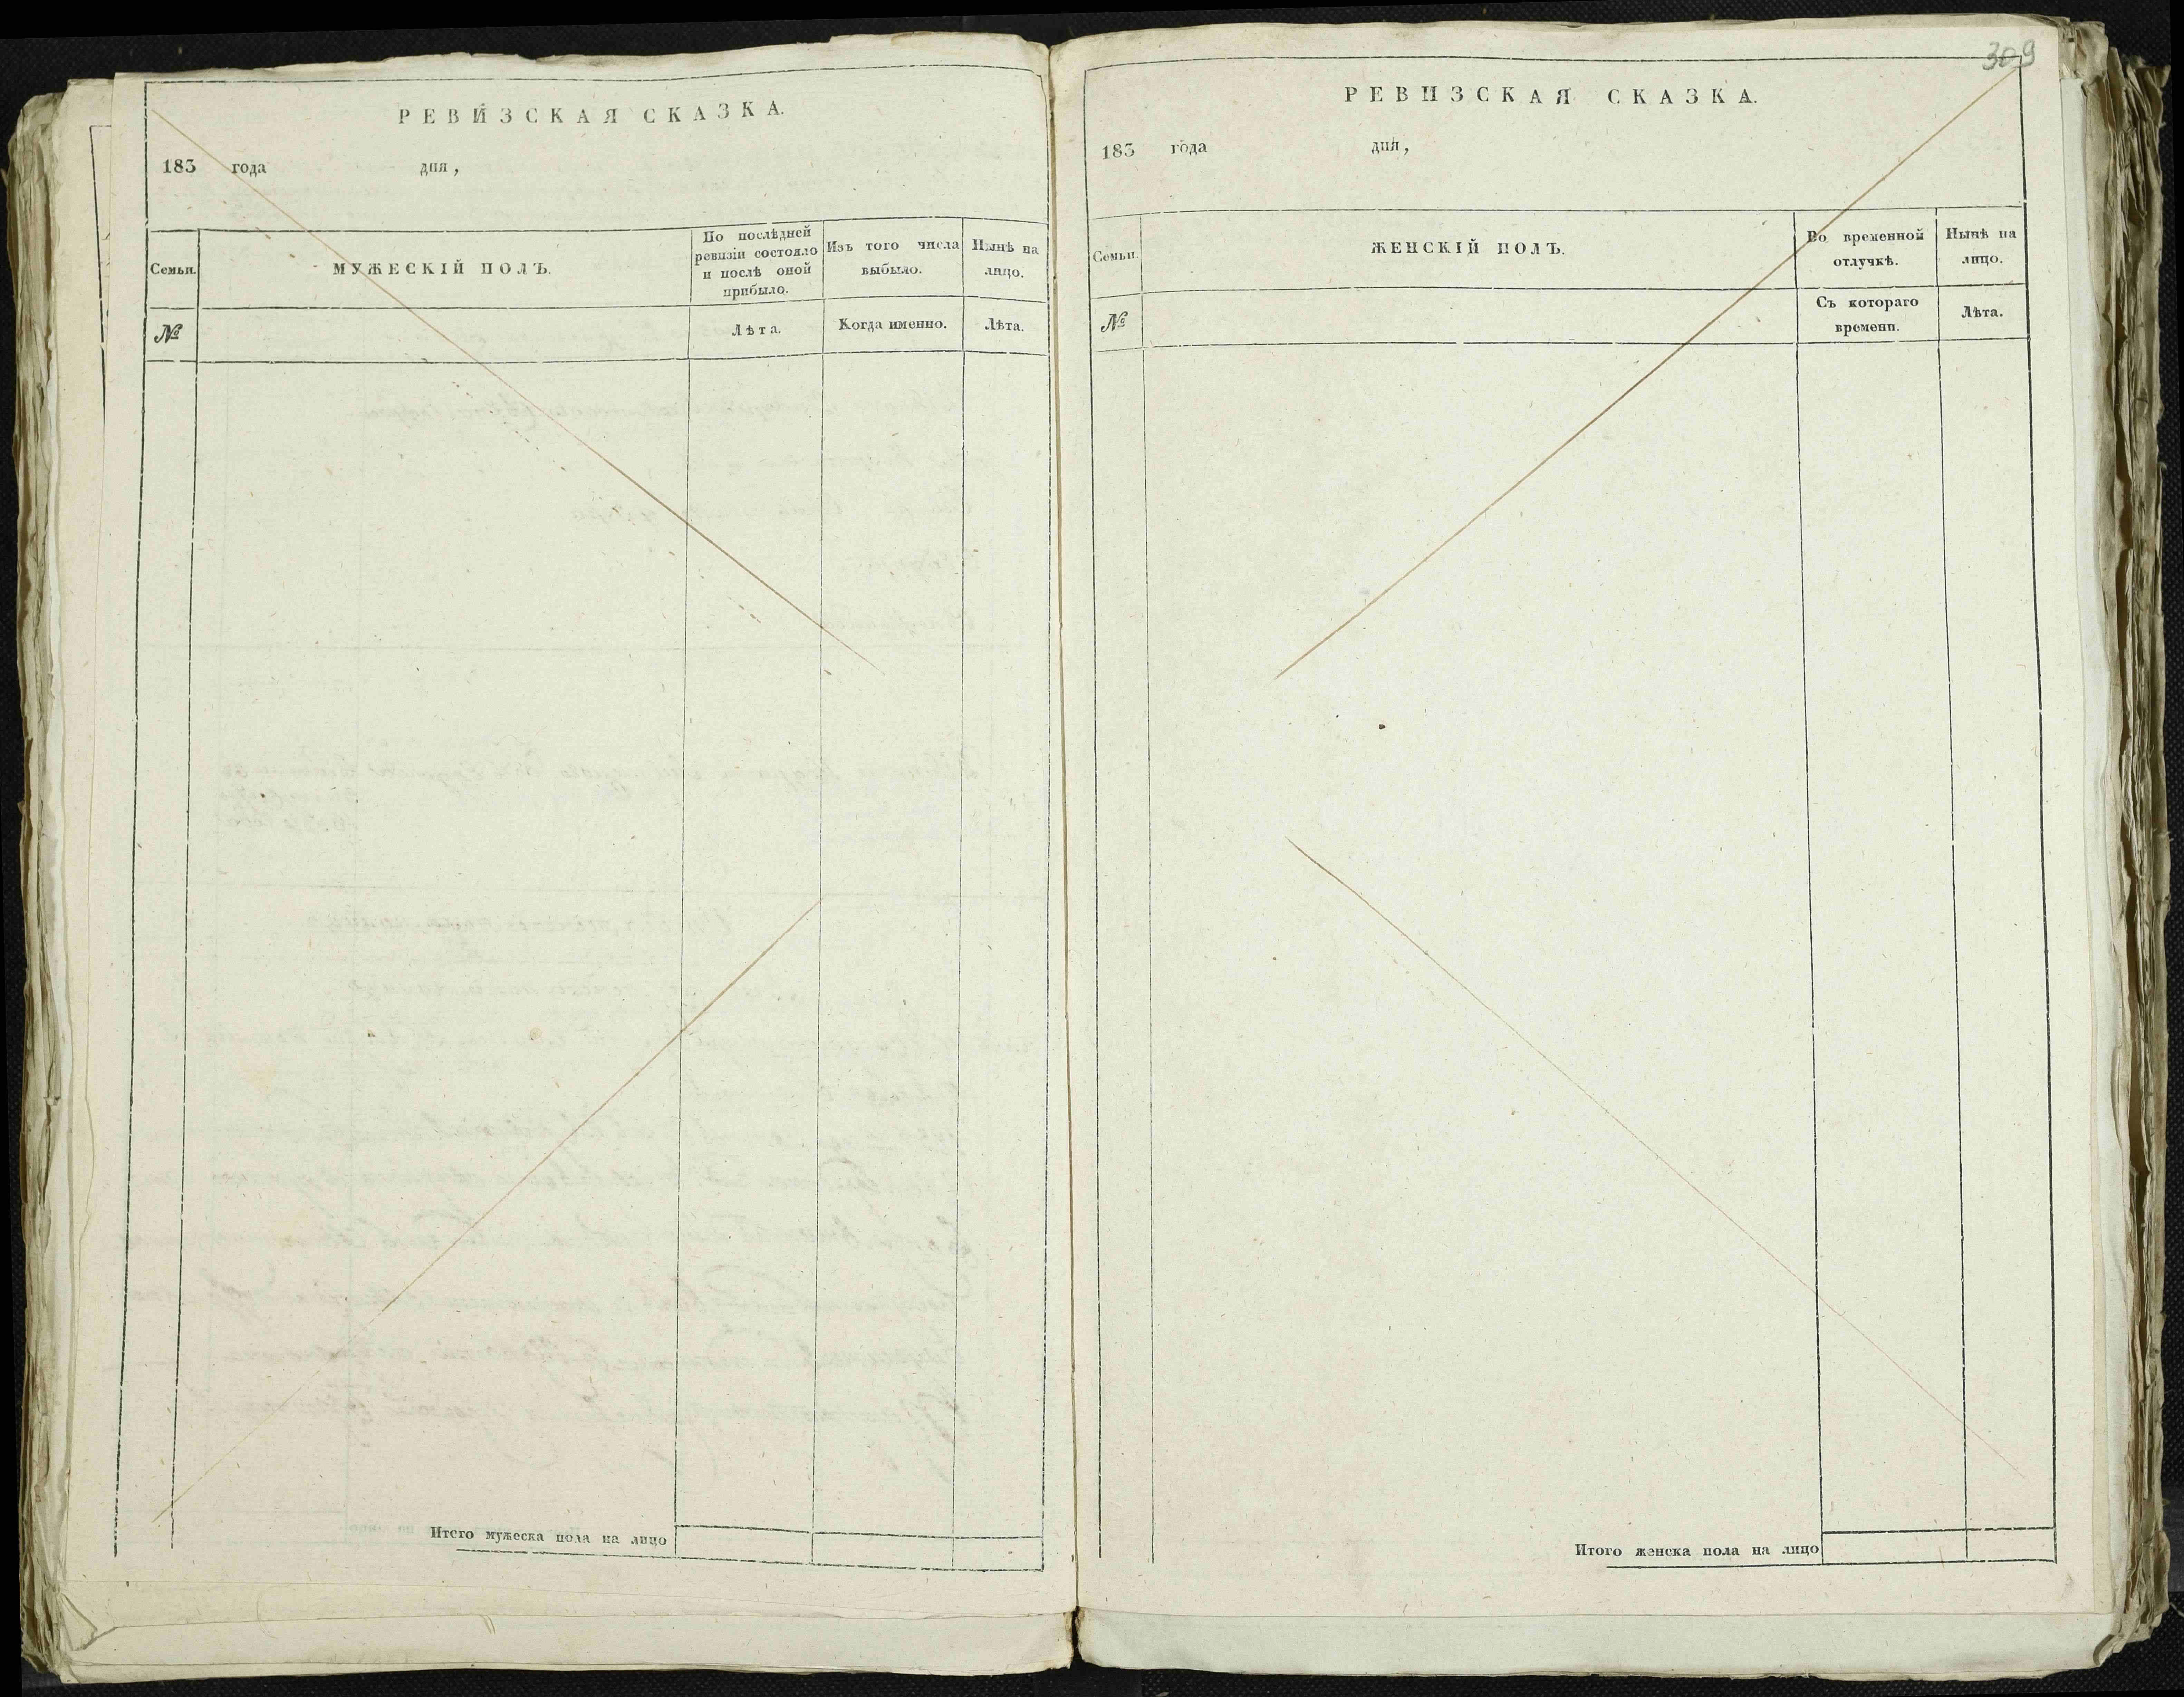 РЕВИЗСКАЯ СКАЗКА.
183 года дня,
Семьи.
МУЖЕСКІЙ ПОЛЪ.
По послѣдней
ревизіи состояло
и послѣ оной
прибыло.
Изъ того числа
выбыло.
Нынѣ на
лицо.
№
Лѣта.
Когда именно.
Лѣта.
Итого мужеска пола на лицо
309
РЕВИЗСКАЯ СКАЗКА.
183 года дня,
Семьи.
ЖЕНСКІЙ ПОЛЪ.
Во временной
отлучкѣ.
Нынѣ на
лицо.
№
Съ котораго
времени.
Лѣта.
Итого женска пола на лицо